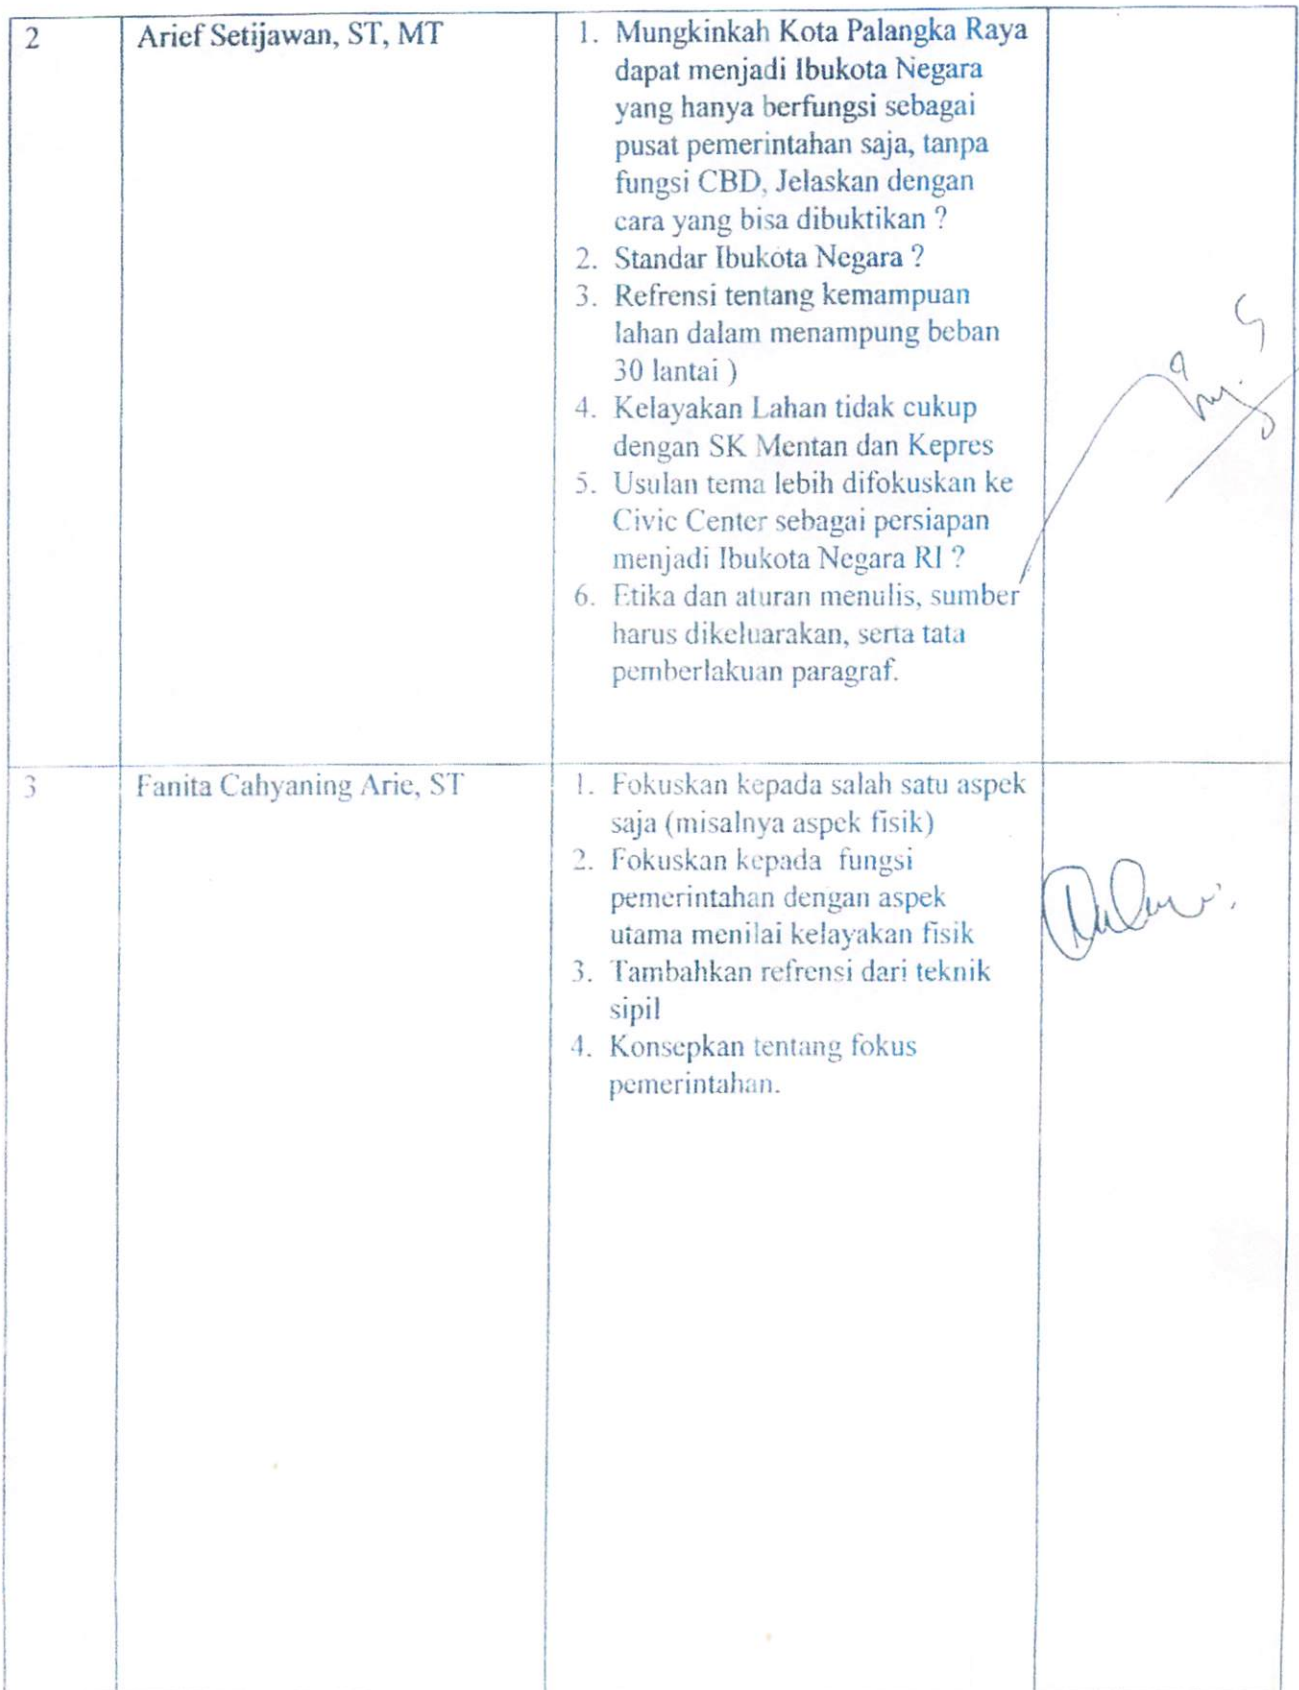 2
Arief Setijawan, ST, MT
1. Mungkinkah Kota Palangka Raya
dapat menjadi Ibukota Negara
yang hanya berfungsi sebagai
pusat pemerintahan saja, tanpa
fungsi CBD, Jelaskan dengan
cara yang bisa dibuktikan ?
2. Standar Ibukota Negara ?
3. Refrensi tentang kemampuan
lahan dalam menampung beban
30 lantai )
4. Kelayakan Lahan tidak cukup
dengan SK Mentan dan Kepres
5. Usulan tema lebih difokuskan ke
Civic Center sebagai persiapan
menjadi Ibukota Negara RI ?
6. Etika dan aturan menulis, sumber
harus dikeluarakan, serta tata
pemberlakuan paragraf.
3
Fanita Cahyaning Arie, ST
1. Fokuskan kepada salah satu aspek
saja (misalnya aspek fisik)
2. Fokuskan kepada fungsi
pemerintahan dengan aspek
utama menilai kelayakan fisik
3. Tambahkan refrensi dari teknik
sipil
4. Konsepkan tentang fokus
pemerintahan.